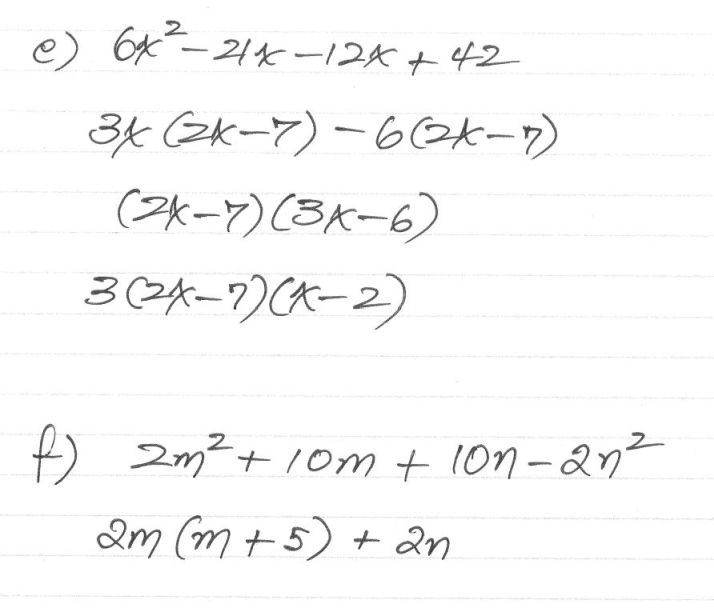 e) 6x² - 21x - 12x + 42
3x (2x - 7) - 6(2x - 7)
(2x - 7)(3x - 6)
3(2x - 7)(x - 2)
f) 2m² + 10m + 10n - 2n²
2m (m + 5) + 2n